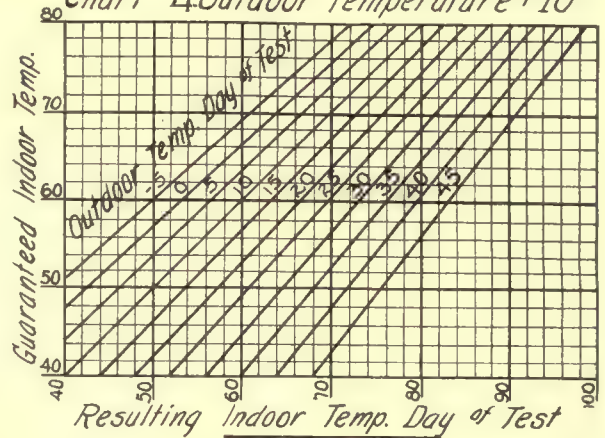 Chart 4. Outdoor Temperature +10
Guaranteed Indoor Temp.
80
70
60
50
40
Outdoor Temp. Day of Test
-5 0 5 10 15 20 25 30 35 40 45
40 50 60 70 80 90 100
Resulting Indoor Temp. Day of Test